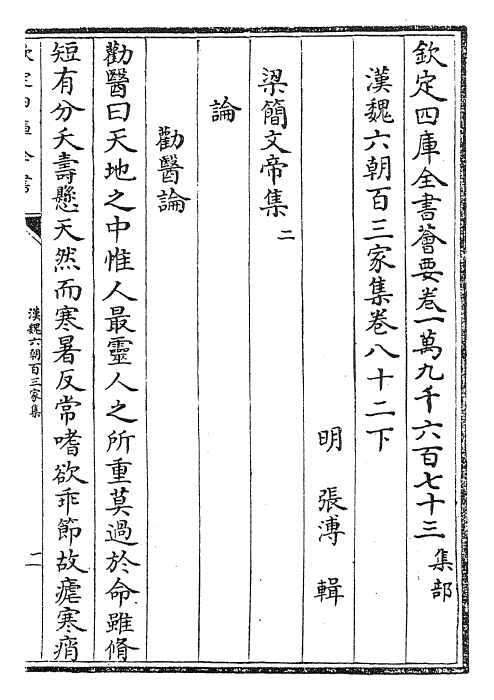 欽定四庫全書薈要卷一萬九千六百七十三 集部
漢魏六朝百三家集卷八十二下
明 張溥 輯
梁簡文帝集二
論
勸醫論
勸醫曰天地之中惟人最靈人之所重莫過於命雖脩
短有分夭壽懸天然而寒暑反常嗜欲乖節故瘧寒痟
漢魏六朝百三家集